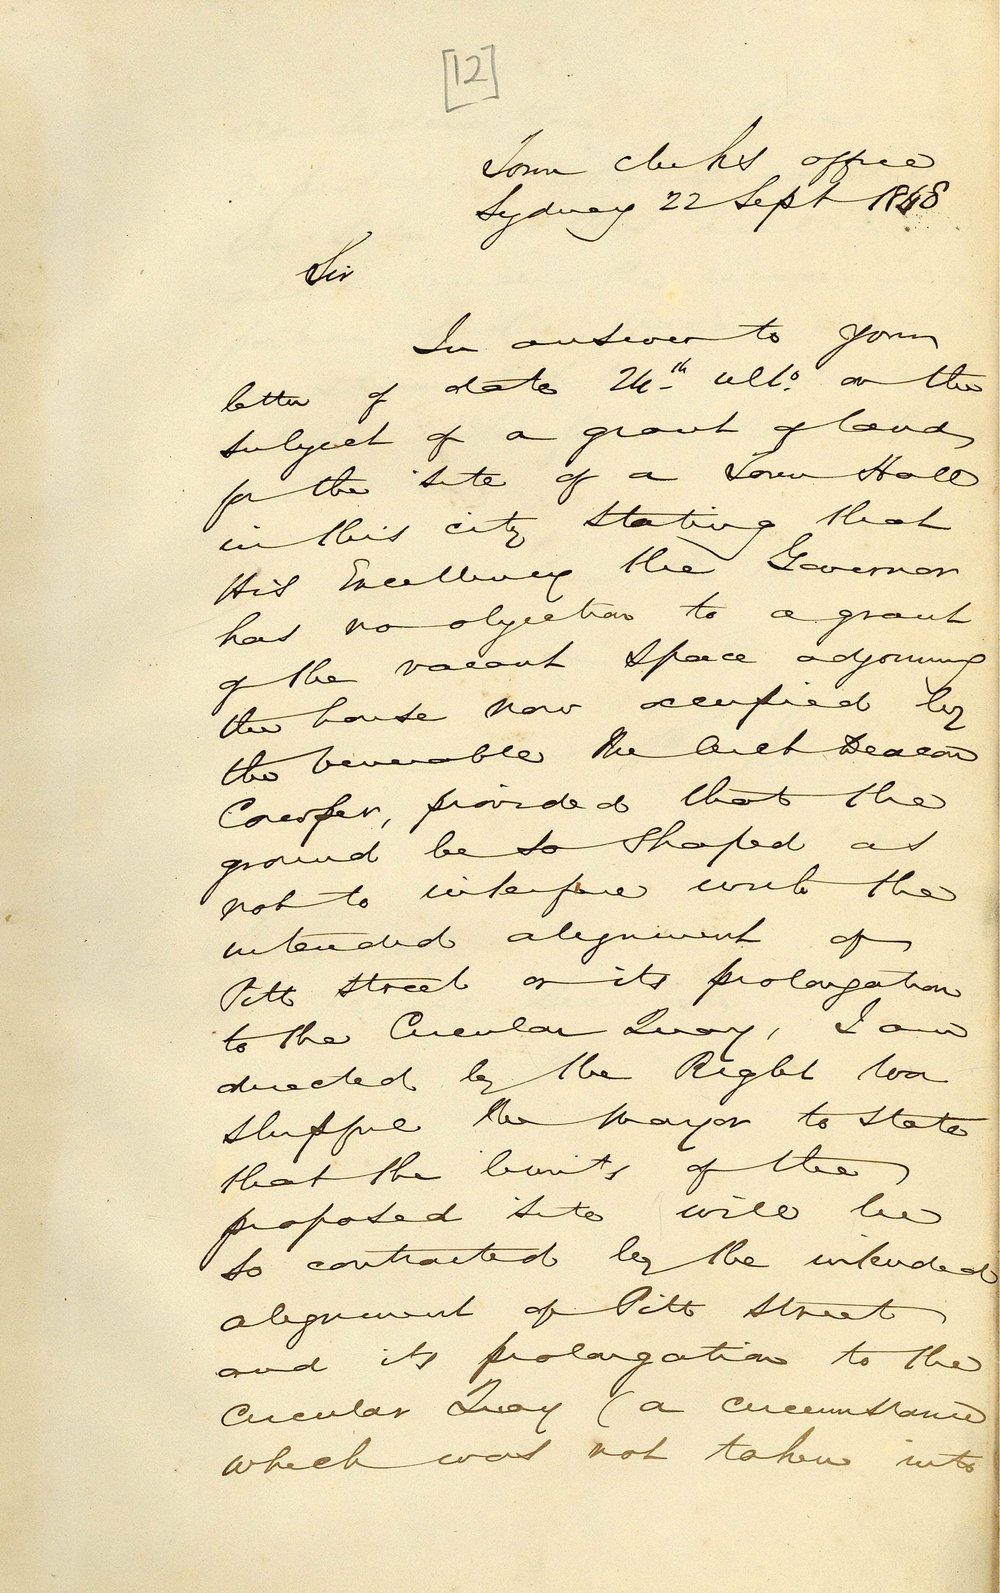 [12]
Town clerks office
Sydney 22 Sept 1848
Sir
In answer to your
letter of date ulto. on the
subject of a grant of land
for the site of a Town Hall
in this city stating that
His Excellency the Governor
has no objection to a grant
of the vacant space adjoining
the house now occupied by
the venerable the Arch Deacon
Cowper, provided that the
ground be so shaped as
not to interfere with the
intended alignment of
Pitt Street or its prolongation
to the Circular Quay, I am
directed by the Right Wor
shipful the Mayor to state
that the limits of the
proposed site will be
so contracted by the intended
alignment of Pitt Street
and its prolongation to the
Circular Quay (a circumstance
which was not taken into